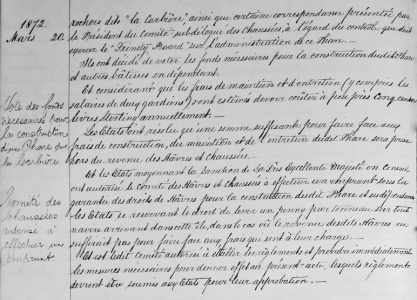 1872.
Mars 20.
Vote des fonds
necessaires pour
la construction
d'un Phare sur
la Corbière
Comité des
chaussées
autorisé à
effectuer un
emprunt.
rochers dits "la Corbière" ainsi que certaine correspondance présentée par
le Président du Comité des Chaussées, à l'égard du contrôle que doit
exercer le "Trinity Board" sur l'administration de ce Phare.
Ils ont décidé de voter les fonds nécessaires pour la construction dudit Phare
et autres bâtisses en dépendant.
Et considérant que les frais de maintien et d'entretien (y compris les
salaires de deux gardiens) sont estimés devoir coûter à peu près cinq cents
livres sterling annuellement.
Les Etats ont résolu qu'une somme suffisante pour faire face aux
frais de construction, du maintien et de l'entretien dudit Phare sera prise
hors du revenu des Hâvres et Chaussées.
Et les Etats moyennant la sanction de Sa Très Excellente Majesté en Conseil
ont autorisé le Comité des Hâvres et Chaussées à effectuer un emprunt sous la
garantie des droits de Hâvres pour la construction dudit Phare et ses dépendances
les Etats se reservant le droit de lever un penny par tonneau sur tout
navire arrivant dans cette île, dans le cas où le revenu desdits Hâvres ne
suffirait pas pour faire face aux frais qui sont à leur charge.
Et est ledit Comité autorisé à établir les règlements et prendre immédiatement
les mesures nécessaires pour donner effet au présent acte, lesquels règlements
devront être soumis aux Etats pour leur approbation.